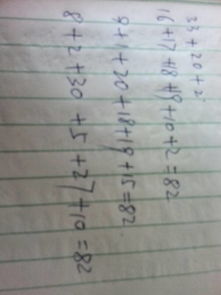 33 + 20 + 2
16 + 17 + 18 + 19 + 10 + 2 = 82
9 + 1 + 20 + 18 + 19 + 15 = 82
8 + 2 + 30 + 5 + 27 + 10 = 82